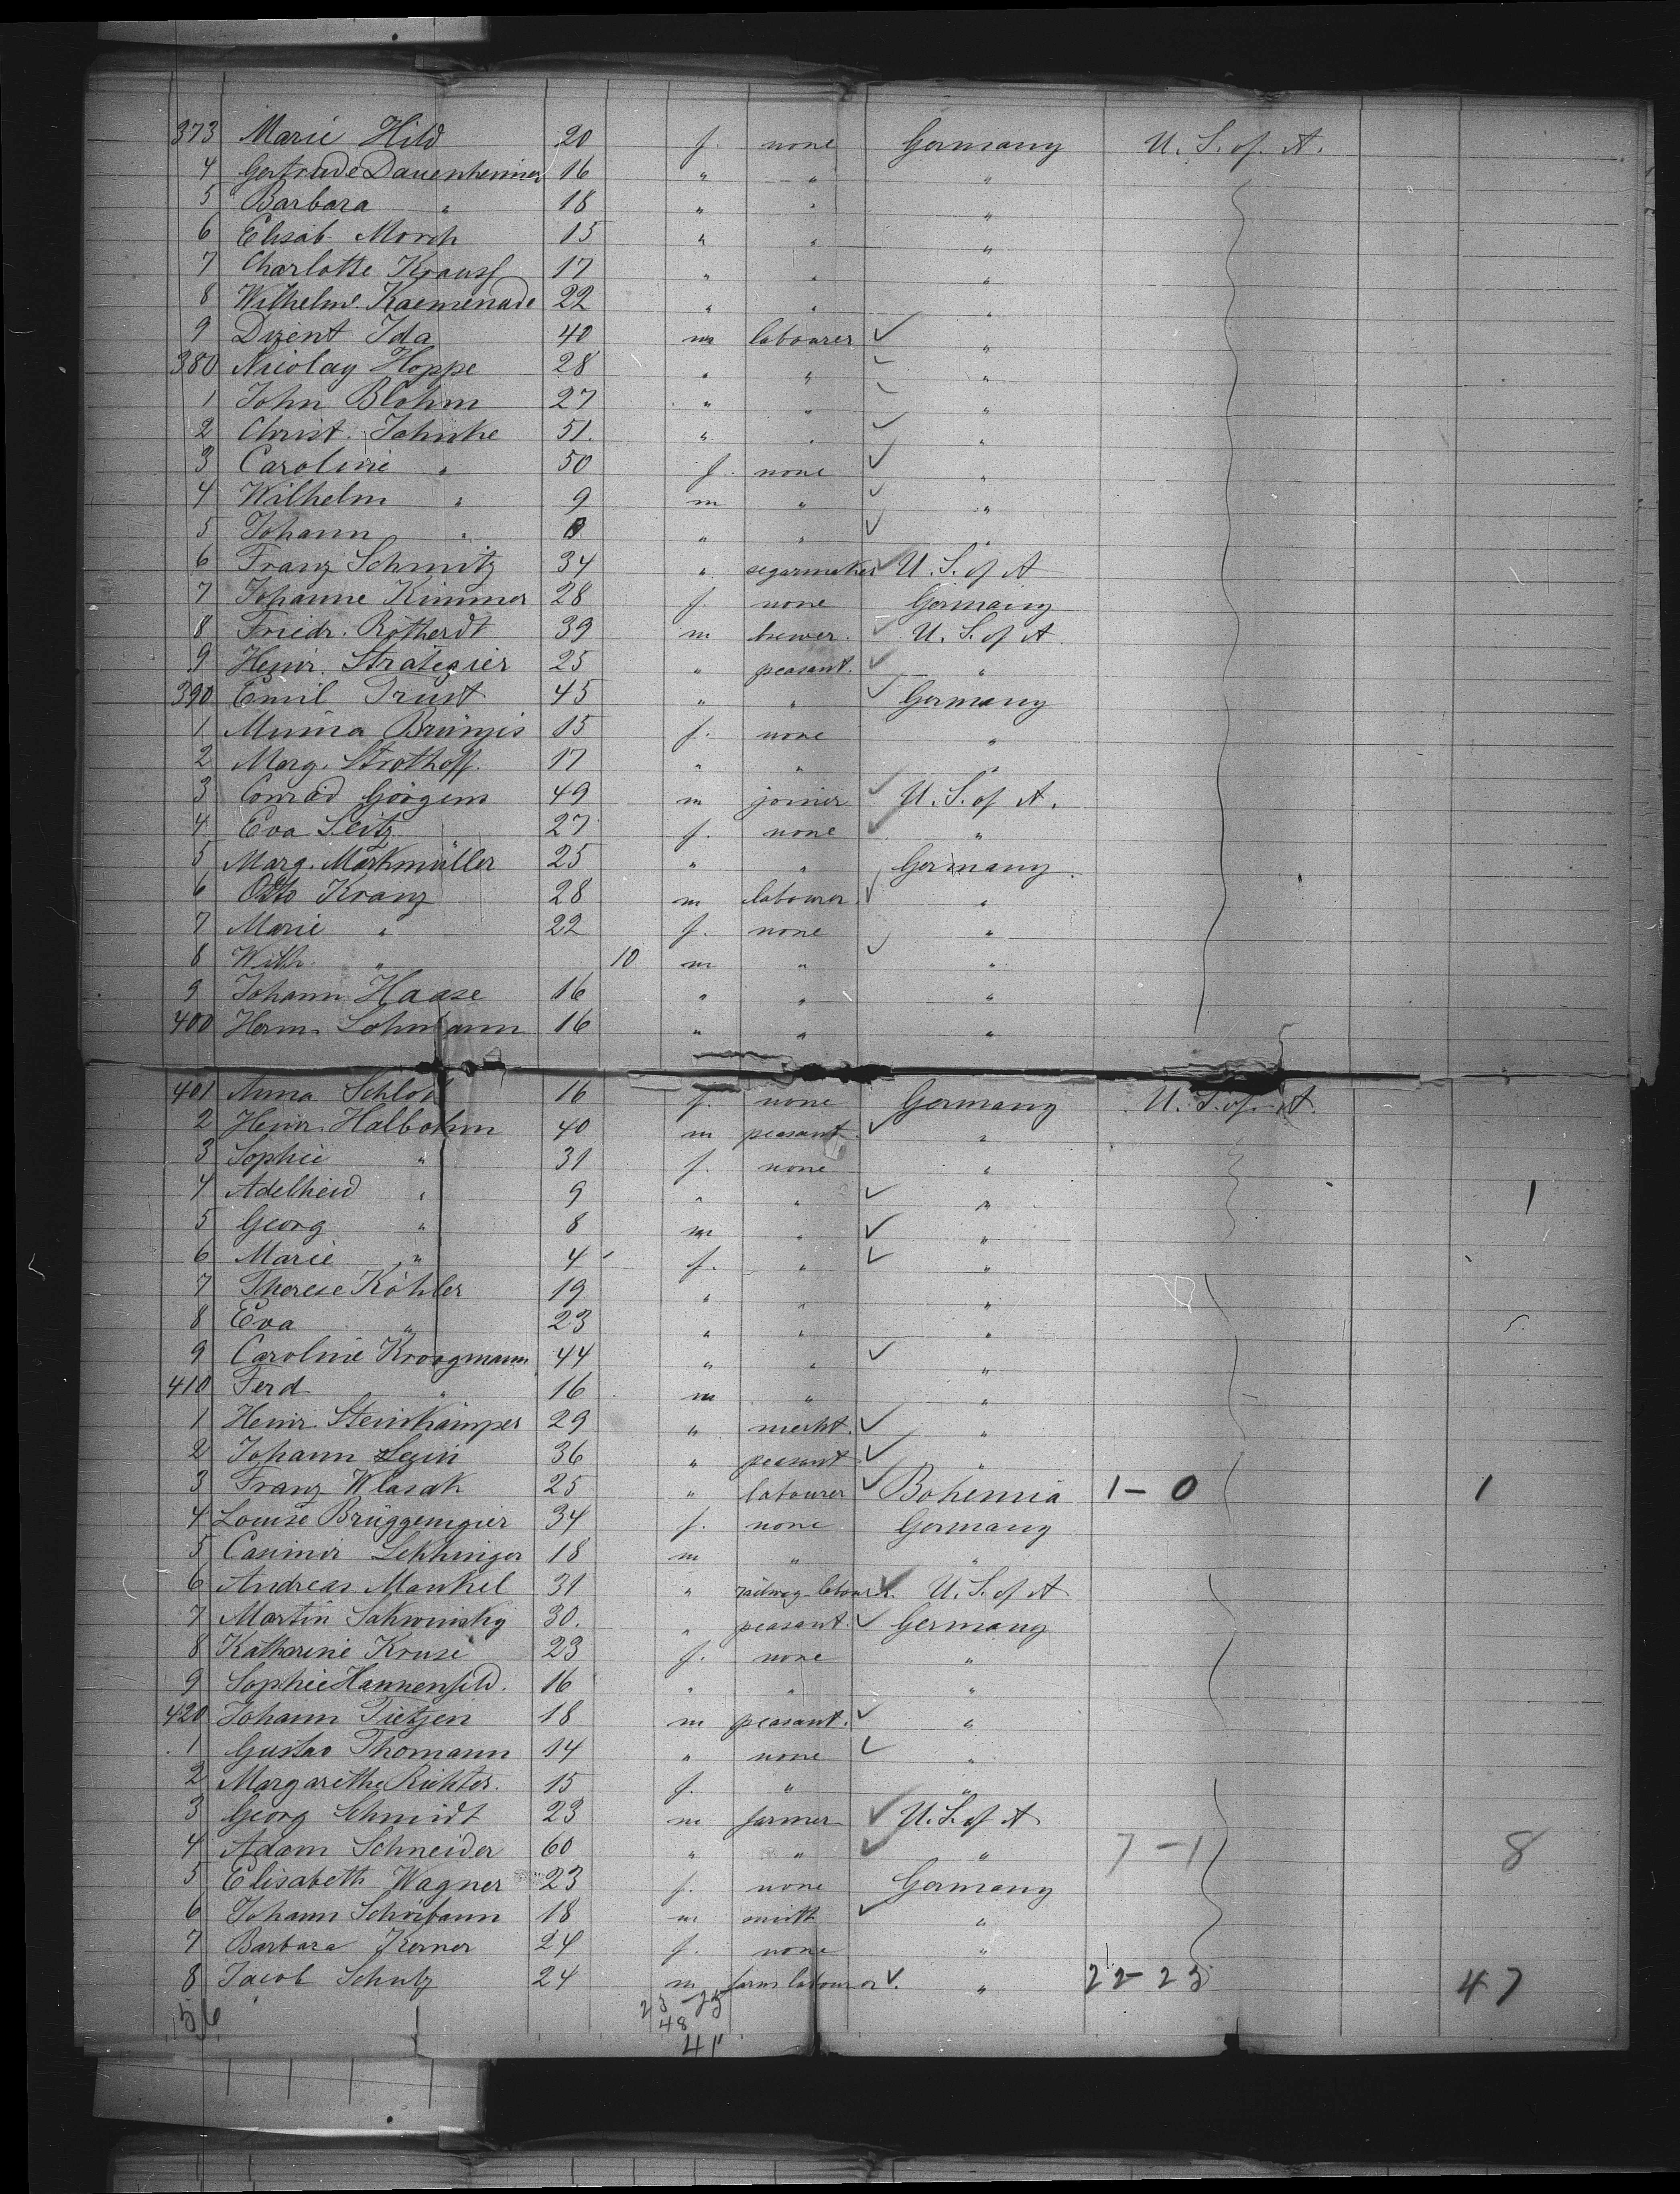 373 Marie Hild 20 f. none Germany U. S. of A.
4 Gertrude Dauenheimer 16 " " "
5 Barbara " 18 " " "
6 Elisab. Morch 15 " " "
7 Charlotte Krauss 17 " " "
8 Wilhelm. Kaemenade 22 " " "
9 Ida 40 m labourer ✓ "
380 Nicolay Hoppe 28 " " ✓ "
1 John Blohm 27 " " ✓ "
2 Christ. Jahnke 51. " " ✓ "
3 Caroline " 50 f. none ✓ "
4 Wilhelm " 9 m " ✓ "
5 Johann " " " ✓ "
6 Franz Schmitz 34 " segarmaker ✓ U. S. of A
7 Johanne Kimmer 28 f. none Germany
8 Friedr. Rotherdt 39 m brewer. ✓ U. S. of A
9 Heinr. 25 " peasant. ✓ "
390 Emil Trust 45 " " ✓ Germany
1 15 f. none "
2 Marg. Strothoff 17 " " "
3 Conrad Görgens 49 m joiner ✓ U. S. of A.
4 Eva Seitz 27 f. none ✓ "
5 Marg. Markmüller 25 " " Germany.
6 Otto Kranz 28 m labourer ✓ "
7 Marie " 22 f. none "
8 Wilh. " 10 m " ✓ "
9 Johann Haase 16 " " "
400 Herm. Lohmann 16 " " "
401 Anna 16 f. none Germany U. S. of A.
2 Heinr. Halbohm 40 m peasant. ✓ "
3 Sophie " 31 f. none "
4 Adelheid " 9 " " ✓ " 1
5 Georg " 8 m " ✓ "
6 Marie " 4 f. " ✓ "
7 Therese Köhler 19 " " "
8 Eva " 23 " " "
9 Caroline Kroogmann 44 " " ✓ "
410 Ferd. " 16 m " "
1 Heinr. Steinkämper 29 " mercht. ✓ "
2 Johann 36 " peasant ✓ "
3 Franz Wlasak 25 " labourer ✓ Bohemia 1 - 0 1
4 Louise Brüggemeier 34 f. none Germany
5 Casimir 18 m " "
6 Andreas Mankel 31 " railway labourer ✓ U. S. of A
7 Martin 30. " peasant. ✓ Germany
8 Katharine Kruse 23 f. none "
9 Sophie Hannenfeld. 16 " " "
420 Johann Tietjen 18 m peasant. ✓ "
1 Gustav Thomann 14 " none ✓ "
2 Margarethe Richter. 15 f. " "
3 Georg Schmidt 23 m farmer ✓ U. S. of A
4 Adam Schneider 60 " " ✓ " 7 - 1 8
5 Elisabeth Wagner 23 f. none Germany
6 Johann 18 m smith ✓ "
7 Barbara Kerner 24 f. none "
8 Jacob Schulz 24 m farm labourer ✓. " 22 - 23 47
56 23 - 25
48
41